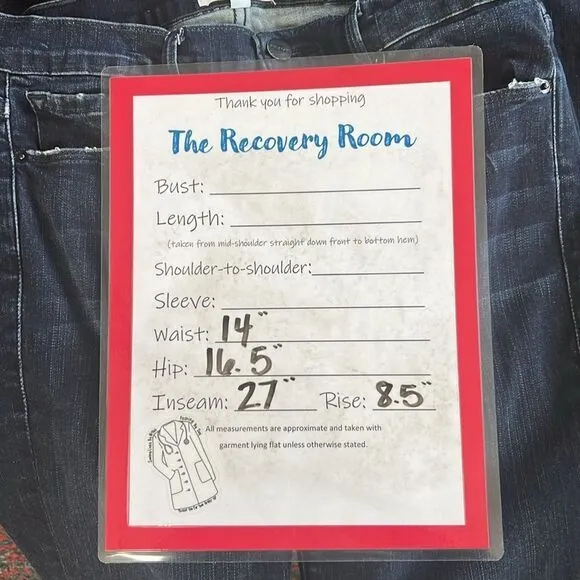 Thank you for shopping
The Recovery Room
Bust:
Length:
(taken from mid-shoulder straight down front to bottom hem)
Shoulder-to-shoulder:
Sleeve:
Waist: 14"
Hip: 16.5"
Inseam: 27" Rise: 8.5"
All measurements are approximate and taken with
garment lying flat unless otherwise stated.